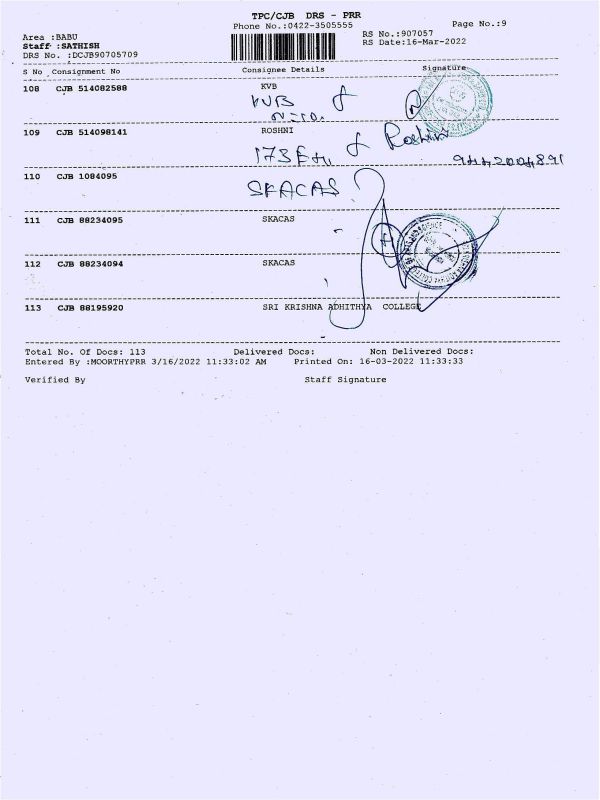 TPC/CJB DRS - PRR
Phone No.:0422-3505555
Page No.:9
Area :BABU
RS No.:907057
Staff :SATHISH
RS Date:16-Mar-2022
DRS No. :DCJB90705709
S No Consignment No Consignee Details Signature
108 CJB 514082588 KVB
KVB
109 CJB 514098141 ROSHNI
Roshini
110 CJB 1084095
SKACAS
111 CJB 88234095 SKACAS
112 CJB 88234094 SKACAS
113 CJB 88195920 SRI KRISHNA ADHITHYA COLLEGE
Total No. Of Docs: 113 Delivered Docs: Non Delivered Docs:
Entered By :MOORTHYPRR 3/16/2022 11:33:02 AM Printed On: 16-03-2022 11:33:33
Verified By Staff Signature